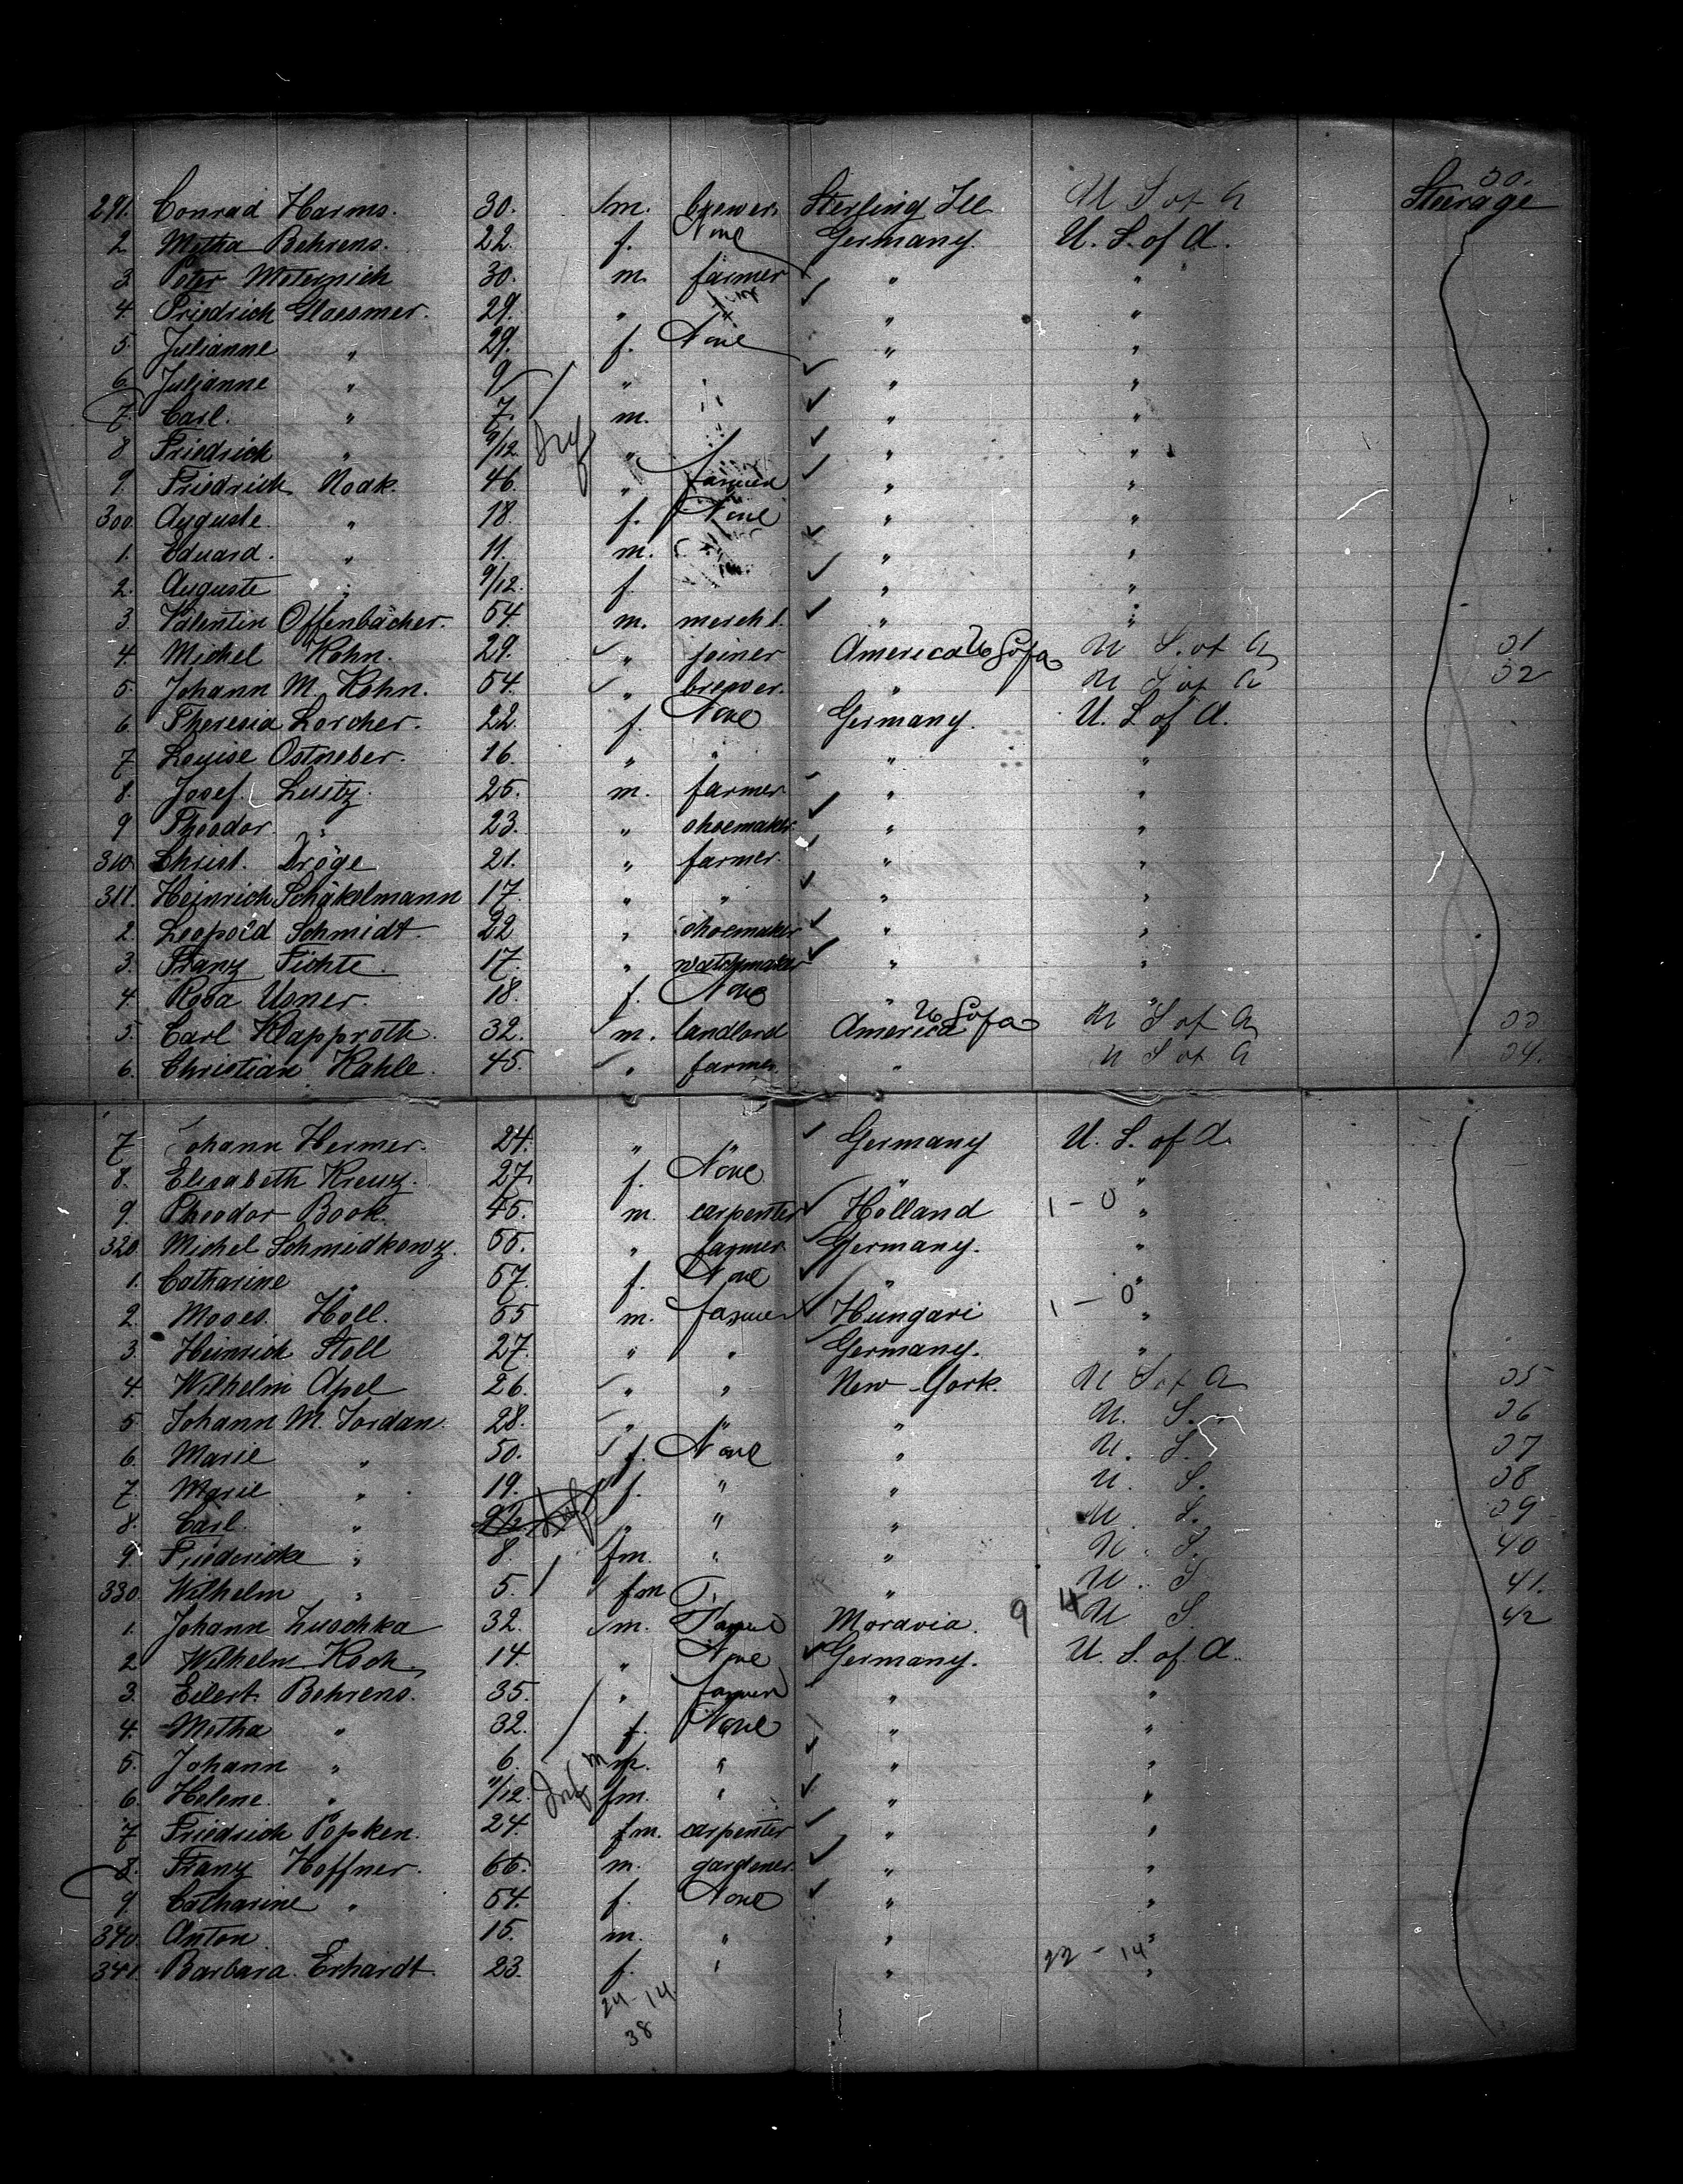 291. Conrad Harms. 30. m. brewer. Sterling Ill. U S of A 30. Steerage
2 Metha Behrens. 22. f. None Germany. U. S. of A.
3 Peter Meternich 30. m. farmer " "
4. Friedrich Glaesmer. 29. " " " "
5. Julianne " 29. f. None " "
6. Julianne " 9 " " " "
7. Carl. " 7. m. " " "
8 Friedrich " 9/12 Inf " " "
9. Friedrich Noak. 46. " farmer " "
300. Auguste. " 18. f. None " "
1. Eduard. " 11. m. " "
2. Auguste " 9/12. f. " "
3. Valentin Offenbächer. 54. m. mercht. " "
4. Michel Kohn. 29. " joiner America U S of A U S. of A 31
5. Johann M. Kohn. 54. " brewer. " U S of A 32
6. Theresia Lorcher. 22. f. None Germany. U. S. of A.
7 Louise Ostneber. 16. " " " "
8. Josef Lusitz. 25. m. farmer " "
9 Theodor. " 23. " shoemaker. " "
310. Christ. Dröge 21. " farmer. " "
311. Heinrich Schäkelmann 17. " " " "
2. Leopold Schmidt. 22 " shoemaker " "
3. Franz Fichte. 17. " watchmaker " "
4. Rosa Usner. 18. f. None " "
5. Carl Klapproth. 32. m. landlord America U S of A U S of A 33
6. Christian Kahle. 45. " farmer. " U S of A 34.
7 Johann Hermer. 24. " " Germany U. S. of A.
8. Elisabeth Kreuz. 27. f. None " "
9. Theodor Book. 45. m. carpenter Holland 1 - 0 "
320. Michel Schmidkowz. 55. " farmer Germany. "
1. Catharine " 57. f. None " "
2 Moses Holl. 55 m. farmer Hungari 1 - 0 "
3. Heinrich Stoll 27. " " Germany. "
4 Wilhelm Apel 26. " " New-York. U S of A 35
5. Johann M. Jordan. 28. " " " U. S. 36
6. Marie " 50. f. None " U. S. 37
7. Marie " 19. f. " " U. S. 38
8. Carl " " " " U. S. 39
9. Friedericke " 8. fm. " " U. S. 40
330. Wilhelm " 5. fm " U. S 41.
1. Johann Luschka 32. m. Farmer Moravia. 9 4 U S. 42
2 Wilhelm Koch. 14. " None Germany. U. S. of A.
3. Eilert Behrens. 35. " farmer " "
4. Metha " 32. f. None " "
5. Johann " 6. m " " "
6. Helene. " 11/12. Inf fm. " " "
7 Friedrich Popken. 24. fm. carpenter " "
8. Franz Hoffner. 66. m. gardener. " "
9. Catharine " 54. f. None " "
340. Anton " 15. m. " " "
341. Barbara Erhardt. 23. f. " " 22 - 14 "
24 - 14
38